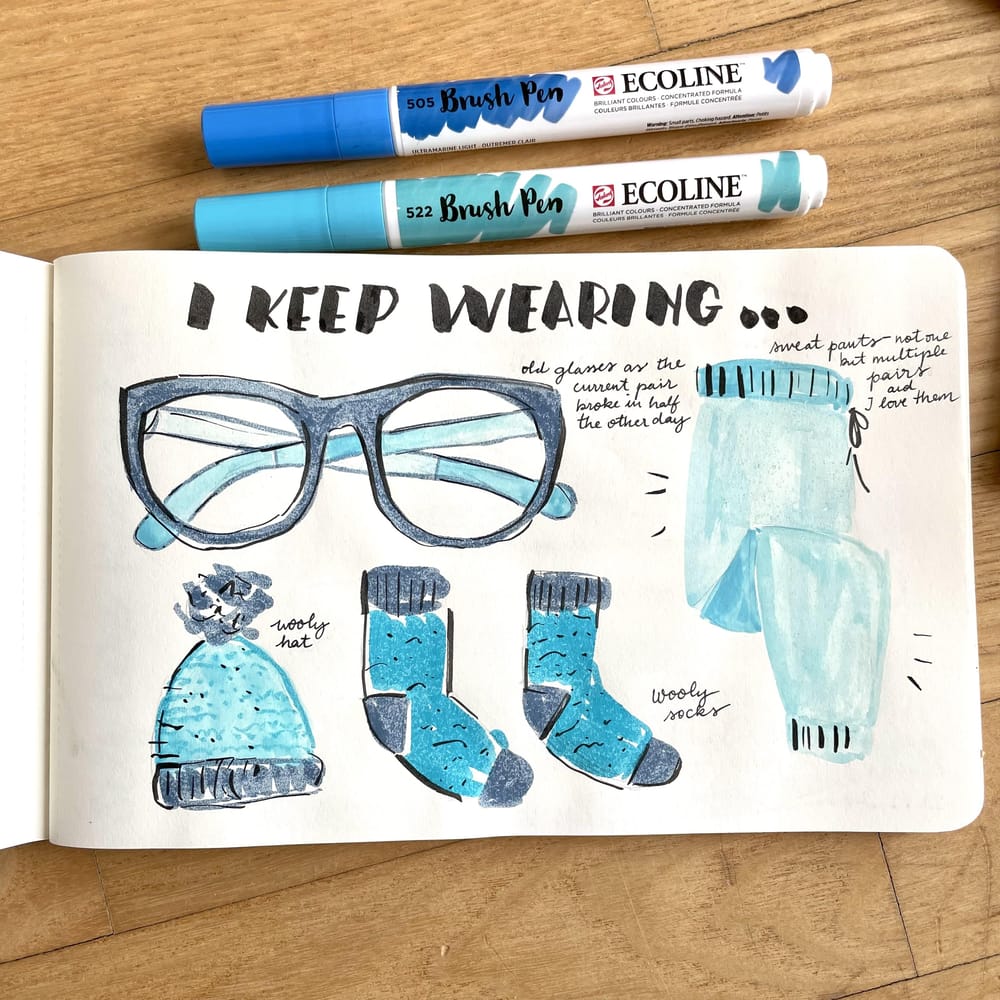 505 Brush Pen
ULTRAMARINE LIGHT · OUTREMER CLAIR
Talens
ECOLINE™
BRILLIANT COLOURS · CONCENTRATED FORMULA
COULEURS BRILLANTES · FORMULE CONCENTRÉE
Warning: Small parts. Choking hazard. Attention: Petits
522 Brush Pen
Talens
ECOLINE™
BRILLIANT COLOURS · CONCENTRATED FORMULA
COULEURS BRILLANTES · FORMULE CONCENTRÉE
I KEEP WEARING...
old glasses as the
current pair
broke in half
the other day
sweat pants not one
but multiple
pairs
and
I love them
wooly
hat
wooly
socks